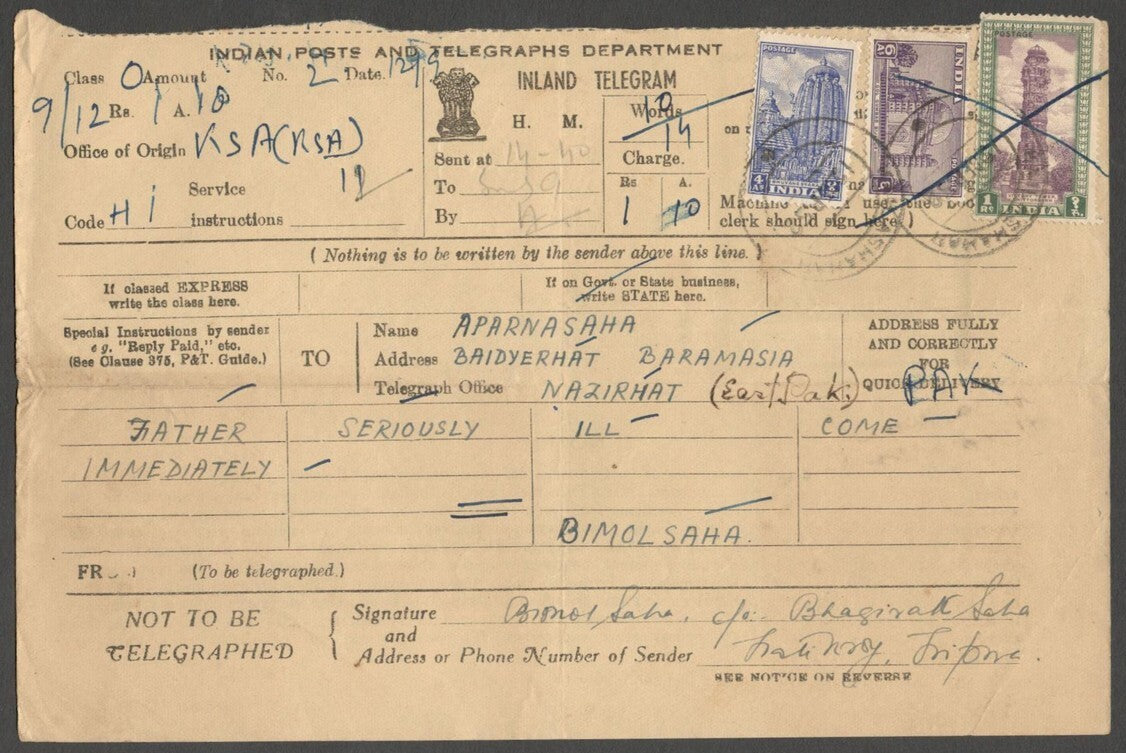 INDIAN POSTS AND TELEGRAPHS DEPARTMENT
Class O Amount No. 2 Date. 12/9
9/12 Rs. 1 A. 10
Office of Origin KSA(KSA)
Service
Code HI instructions
INLAND TELEGRAM
H. M.
Sent at 14-40
To
By
Words
10
14
Charge.
Rs A.
1 10
clerk should sign here.)
POSTAGE
4 AS INDIA
6 A INDIA
POSTAGE
1 RS INDIA
( Nothing is to be written by the sender above this line. )
If classed EXPRESS
write the class here.
If on Govt. or State business,
write STATE here.
Special Instructions by sender
e g. "Reply Paid," etc.
(See Clause 375, P&T. Guide.)
TO
Name APARNASAHA
Address BAIDYERHAT BARAMASIA
Telegraph Office NAZIRHAT (East Pak.) PAK
ADDRESS FULLY
AND CORRECTLY
FOR
QUICK DELIVERY
FATHER SERIOUSLY ILL COME
IMMEDIATELY
BIMOLSAHA.
(To be telegraphed.)
NOT TO BE
TELEGRAPHED
Signature
and
Address or Phone Number of Sender
Bimol Saha. c/o. Bhagirath Saha
Tripura
SEE NOTICE ON REVERSE